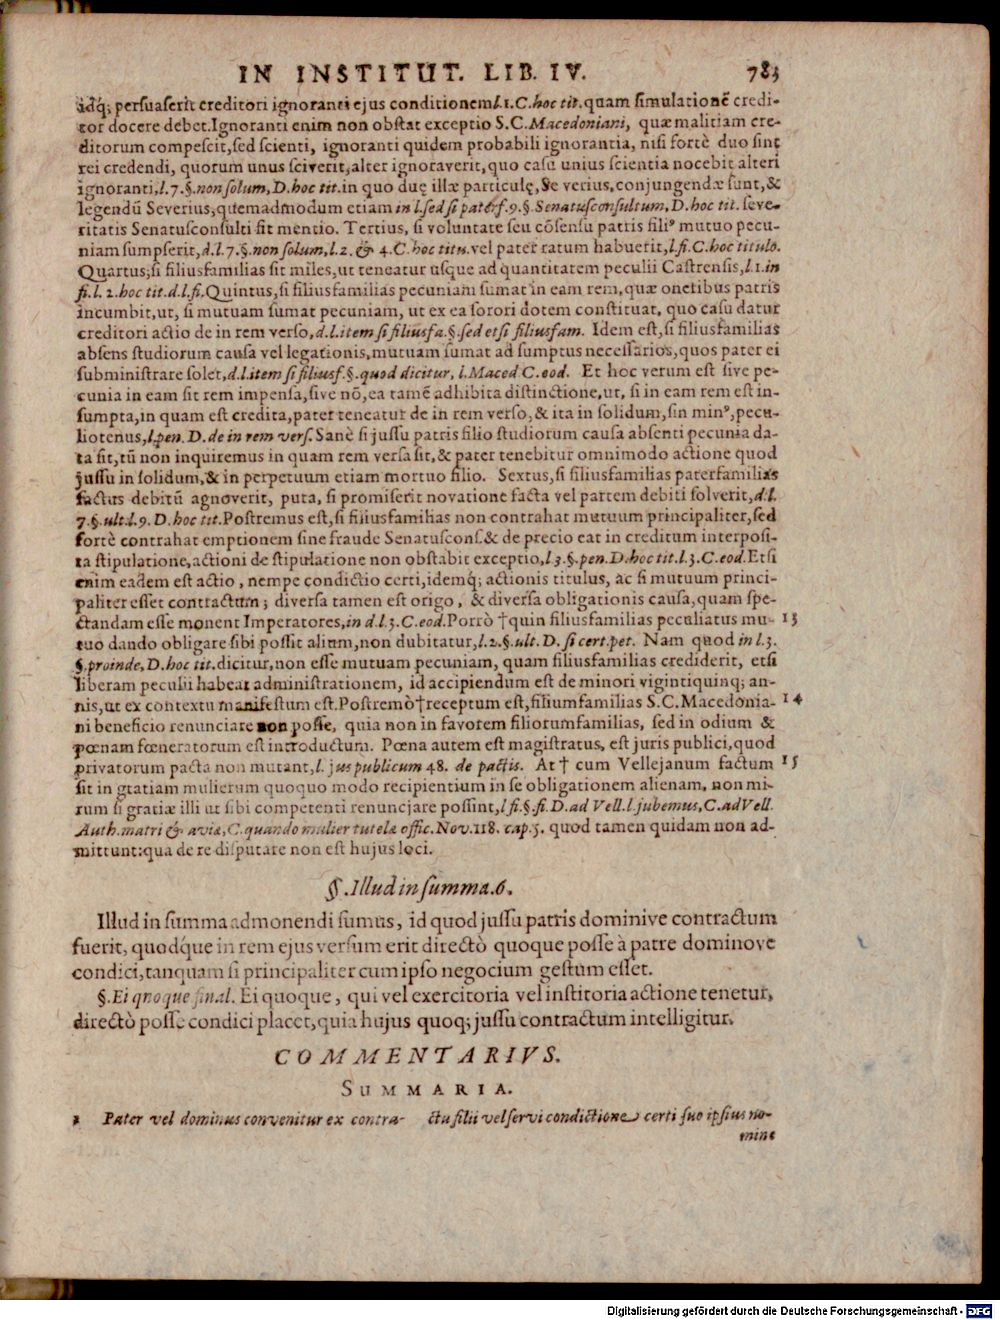 IN INSTITUT. LIB. IV. 785
idq; persuaserit creditori ignoranti ejus conditionem l. 1. C. hoc tit. quam simulationē credi-
tor docere debet. Ignoranti enim non obstat exceptio S. C. Macedoniani, quæ malitiam cre-
ditorum compescit, sed scienti, ignoranti quidem probabili ignorantia, nisi fortè duo sint
rei credendi, quorum unus sciverit, alter ignoraverit, quo casu unius scientia nocebit alteri
ignoranti, l. 7. §. non solum, D. hoc tit. in quo duę illæ particulę, Se verius, conjungendæ sunt, &
legendū Severius, quemadmodum etiam in l. sed si paterf. 9. §. Senatusconsultum, D. hoc tit. seve-
ritatis Senatusconsulti fit mentio. Tertius, si voluntate seu cōsensu patris filiꝰ mutuo pecu-
niam sumpserit, d. l. 7. §. non solum, l. 2. & 4. C. hoc titu. vel pater ratum habuerit, l. fi. C. hoc titulo.
Quartus; si filiusfamilias sit miles, ut teneatur usque ad quantitatem peculii Castrensis, l. 1. in
fi. l. 2. hoc tit. d. l. fi. Quintus, si filiusfamilias pecuniam sumat in eam rem, quæ onetibus patris
incumbit, ut, si mutuam sumat pecuniam, ut ex ea sorori dotem constituat, quo casu datur
creditori actio de in rem verso, d. l. item si filiusfa. §. sed etsi filiusfam. Idem est, si filiusfamilias
absens studiorum causa vel legationis, mutuam sumat ad sumptus necessarios, quos pater ei
subministrare solet, d. l. item si filiusf. §. quod dicitur, l. Maced C. eod. Et hoc verum est sive pe-
cunia in eam sit rem impensa, sive nō, ea tamē adhibita distinctione, ut, si in eam rem est in-
sumpta, in quam est credita, pater teneatur de in rem verso, & ita in solidum, sin minꝰ, pecu-
liotenus, l. pen. D. de in rem vers. Sanè si jussu patris filio studiorum causa absenti pecunia da-
ta sit, tū non inquiremus in quam rem versa sit, & pater tenebitur omnimodo actione quod
jussu in solidum, & in perpetuum etiam mortuo filio. Sextus, si filiusfamilias paterfamilias
factus debitū agnoverit, puta, si promiserit novatione facta vel partem debiti solverit, d. l.
7. §. ult. l. 9. D. hoc tit. Postremus est, si filiusfamilias non contrahat mutuum principaliter, sed
fortè contrahat emptionem sine fraude Senatuscons. & de precio eat in creditum interposi-
ta stipulatione, actioni de stipulatione non obstabit exceptio, l. 3. §. pen. D. hoc tit. l. 3. C. eod. Etsi
enim eadem est actio, nempe condictio certi, idemq; actionis titulus, ac si mutuum princi-
paliter esset contractum; diversa tamen est origo, & diversa obligationis causa, quam spe-
ctandam esse monent Imperatores, in d. l. 3. C. eod. Porrò †quin filiusfamilias peculiatus mu- 13
tuo dando obligare sibi possit alium, non dubitatur, l. 2. §. ult. D. si cert. pet. Nam quod in l. 3.
§. proinde, D. hoc tit. dicitur, non esse mutuam pecuniam, quam filiusfamilias crediderit, etsi
liberam peculii habeat administrationem, id accipiendum est de minori vigintiquinq; an-
nis, ut ex contextu manifestum est. Postremò †receptum est, filiumfamilias S. C. Macedonia- 14
ni beneficio renunciare non posse, quia non in favorem filiorumfamilias, sed in odium &
pœnam fœneratorum est introductum. Pœna autem est magistratus, est juris publici, quod
privatorum pacta non mutant, l. jus publicum 48. de pactis. At † cum Vellejanum factum 15
sit in gratiam mulierum quoquo modo recipientium in se obligationem alienam, non mi-
rum si gratiæ illi ut sibi competenti renunciare possint, l. fi. §. fi. D. ad Vell. l. jubemus, C. ad Vell.
Auth. matri & aviæ, C. quando mulier tutelæ offic. Nov. 118. cap. 5. quod tamen quidam non ad-
mittunt: qua de re disputare non est hujus loci.
§. Illud in summa. 6.
Illud in summa admonendi sumus, id quod jussu patris dominive contractum
fuerit, quodque in rem ejus versum erit directò quoque posse à patre dominove
condici, tanquam si principaliter cum ipso negocium gestum esset.
§. Ei quoque final. Ei quoque, qui vel exercitoria vel institoria actione tenetur,
directò posse condici placet, quia hujus quoq; jussu contractum intelligitur.
COMMENTARIVS.
SUMMARIA.
1 Pater vel dominus convenitur ex contra-
ctu filii vel servi condictione certi suo ipsius no-
mine
Digitalisierung gefördert durch die Deutsche Forschungsgemeinschaft - DFG